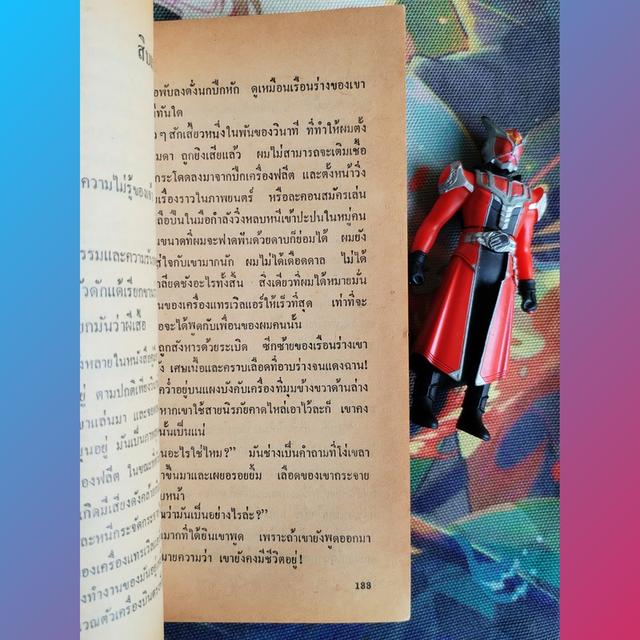 สิบ
ความไม่รู้ของ
รรมและความ
วดักแด้เรียก
ยกมันว่าผีเสื้อ
งหลายในหนังสือ
อยู่ ตามปกติเพียง
ขาแล่นมา และ
มุนอยู่ มันเป็น
องฟลีต ในขณะ
เกิดมีเสียงดังคล้าย
ละหนึ่กระจัดกระ
องเครื่องแทรเวิล
งทำงานของมัน
วณตัวเครื่องบินตรง
อพับลงดั่งนกปีกหัก ดูเหมือนเรือนร่างของเขา
ทันใด
วๆ สักเสี้ยวหนึ่งในพันของวินาที ที่ทำให้ผมตั้ง
มดา ถูกยิงเสียแล้ว ผมไม่สามารถจะเติมเชื้อ
กระโดดลงมาจากปีกเครื่องฟลีต และตั้งหน้าวิ่ง
เรื่องราวในภาพยนตร์ หรือละคอนสมัครเล่น
ถือปืนในมือกำลังวิ่งหลบหนีเข้าปะปนในหมู่คน
ขนาดที่ผมจะฟาดฟันด้วยดาบก็ย่อมได้ ผมยัง
ใจกับเขามากนัก ผมไม่ได้เดือดดาล ไม่ได้
ลียดชังอะไรทั้งสิ้น สิ่งเดียวที่ผมได้หมายมั่น
นของเครื่องแทรเวิลแอร์ให้เร็วที่สุด เท่าที่จะ
อจะได้พูดกับเพื่อนของผมคนนั้น
ถูกสังหารด้วยระเบิด ซีกซ้ายของเรือนร่างเขา
ง เศษเนื้อและคราบเลือดที่อาบร่างจนแดงฉาน!
คว่ำอยู่บนแผงบังคับเครื่องที่มุมข้างขวาด้านล่าง
หากเขาใช้สายนิรภัยคาดไหล่เอาไว้ละก็ เขาคง
นั้นเป็นแน่
นอะไรใช่ไหม?” มันช่างเป็นคำถามที่โง่เขลา
าขึ้นมาและเผยอรอยยิ้ม เลือดของเขากระจาย
บหน้า
ว่ามันเป็นอย่างไรล่ะ?”
มากที่ได้ยินเขาพูด เพราะถ้าเขายังพูดออกมา
มายความว่า เขายังคงมีชีวิตอยู่!
133